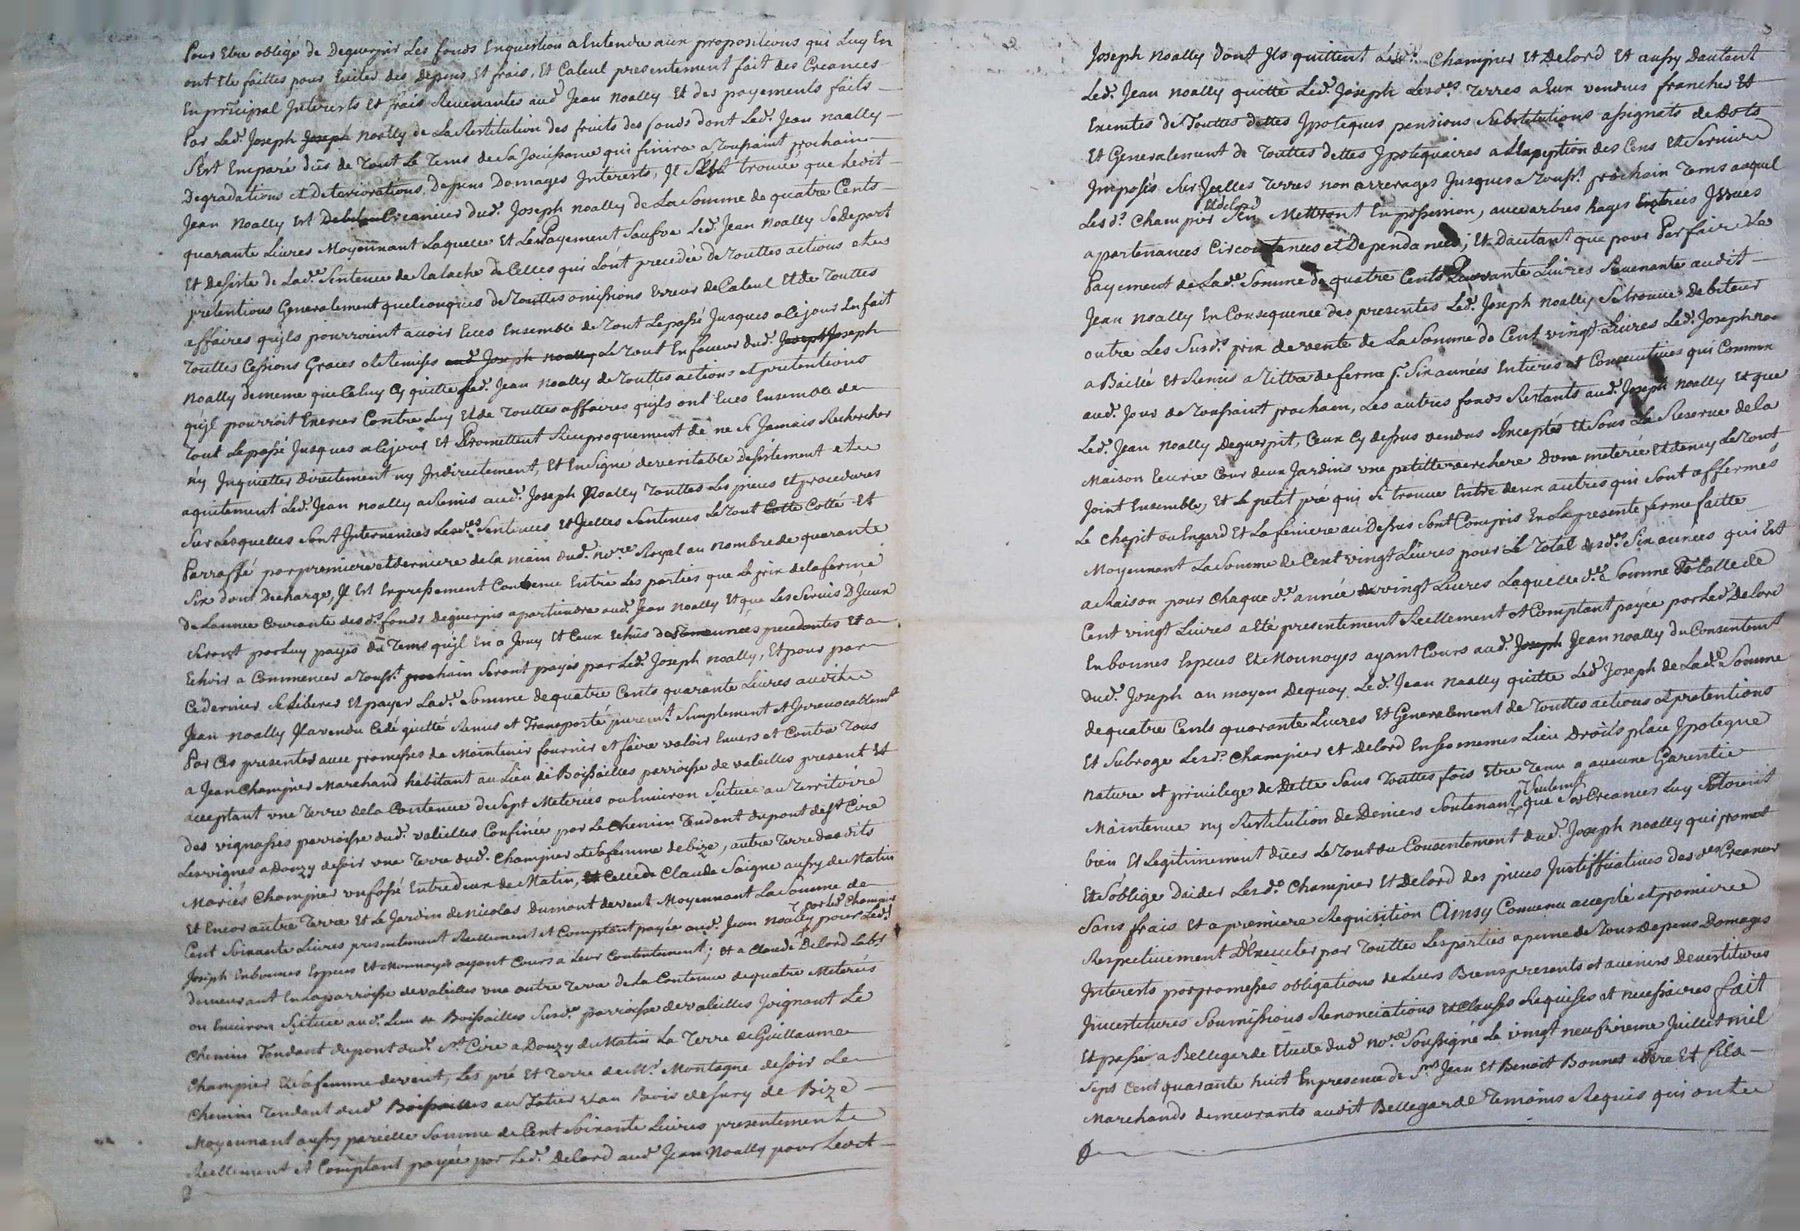 Pour Etre obligé de Deguerpir Les fonds Enquestion a Entendu aux propositions qui Luy En
ont Ete faittes pour Eviter des depens Et frais, Et Calcul presentement fait des Creances
En principal Interests Et frais Revenantes aud. Jean Noally Et des payements faits
Par Led. Joseph Joseph Noally de La Restitution des fruits des fonds dont Led. Jean Noally
S'Est Emparé dus de Tout Le Tems de Sa Jouissance qui finira a Toussaint prochain
Degradations et Deteriorations, Depens Domages Interests, Il S'Est trouvé que Ledit
Jean Noally Est Creancier dud. Joseph Noally de La Somme de quatre Cents
quarante Livres Moyennant Laquelle Et Le Payement Saufve Led. Jean Noally Se Depart
Et desiste de Lad. Sentence de Relache de Celles qui L'ont precedée de Touttes actions et
pretentions Generalement quelconques de Touttes omissions Erreur de Calcul Et de Touttes
affaires qu'ils pourroient avoir Eues Ensemble de Tout Le passé Jusques a Ce jour En fait
Touttes Cessions Graces et Remises aud. Joseph Noally Le Tout En faveur dud. Joseph Joseph
Noally de meme que Celuy Cy quitte Led. Jean Noally de Touttes actions et pretentions
qu'il pourroit Exercer Contre Luy Et de Touttes affaires qu'ils ont Eues Ensemble de
Tout Le passé Jusques a Ce jour Et Promettent Reciproquement de ne Se Jamais Rechercher
n'y Inquietter directement ny Indirectement, Et En Signe de veritable desistement et
aquitement Led. Jean Noally a Remis aud. Joseph Noally Touttes Les pieces Et procedures
Sur Lesquelles Sont Intervenües Lesd.es Sentences Et Icelles Sentences Le Tout Cotte Cotté Et
Parraffé par premiere et derniere de la main dud. no.re Royal au nombre de quarante
Six dont Decharge, Il Est Expressement Convenu Entre Les parties que Le prix de la ferme
de L'année Courante desd. fonds deguerpis apartiendra aud. Jean Noally Et que Les Servis D Iceux
Seront par Luy payés du Tems qu'il En a Jouy Et Ceux Echus des années precedentes Et a
Echoir a Commencer a Touss.t prochain Seront payés par Led. Joseph Noally, Et pour par
Ce dernier Se Liberer Et payer Lad. Somme de quatre Cents quarante Livres audit
Jean Noally Il a vendu Cedé quitté Remis et Transporté purem.t Simplement et Irrevocablem.t
Par Ces presentes avec promesses de Maintenir fournir et faire valoir Envers et Contre Tous
a Jean Champier Marchand habitant au Lieu de Boissailles parroisse de valeilles present Et
acceptant une Terre de la Contenue de Sept Meterées ou Environ Scituée au Territoire
des vignasses parroisse dud. valeilles Confinée par Le Chemin Tendant du pont de S.t Cire
Les vignes a Donzy de soir une Terre dud. Champier et Sa femme de bize, autre Terre desdits
Mariés Champier un fossé Entre deux de Matin, Et Celle de Claude Saigne aussy de Matin
Et Encor autre Terre Et Le Jardin de Nicolas Dumont de vent Moyennant La Somme de
Cent Soixante Livres presentement Reellement et Comptant payée par led. Champier aud. Jean Noally pour Led.
Joseph En bonnes Especes Et Monnoyes ayant Cours a Leur Contentement; Et a Claude Delord Lab.r
demeurant En La parroisse de valeilles une autre Terre de La Contenue de quatre Meterées
ou Environ Scituée aud. Lieu de Boissailles Susd.e parroisse de valeilles Joignant Le
Chemin Tendant du pont dud. S.t Cire a Donzy de Matin La Terre de Guillaume
Champier Et Sa femme de vent, Les pré Et Terre de M.r Montagne de soir Le
Chemin Tendant dud. Boissailles au Bois de Sury de Bize
Moyennant aussy pareille Somme de Cent Soixante Livres presentement
Reellement et Comptant payée par Led. Delord aud. Jean Noally pour Ledit
Joseph Noally dont Ils quittent Lesd. Champier Et Delord Et aussy Dautant
Led. Jean Noally quitte Led. Joseph Lesd.es Terres a Eux vendues franches Et
Exemtes de Touttes dettes Ipoteques pensions Substitutions assignats de Dots
Et Generalement de Touttes dettes Ipotequaires a L'Exeption des Cens Et Servis
Imposés Sur Icelles Terres non arrerages Jusques a Touss.t prochain Tems auquel
Lesd. Champier Et delord S'En Mettront En possession, avec arbres hayes Entrées Issues
apartenances Circonstances et Dependances; Et Dautant que pour Parfaire Le
Payement de Lad. Somme de quatre Cents Quarante Livres Revenante audit
Jean Noally En Consequence des presentes Led. Joseph Noally Se trouve debiteur
outre Les Susd. prix de vente de La Somme de Cent vingt Livres Led. Joseph No
a Baillé Et Remis a Titre de ferme p.r Six années Entieres et Consecutives qui Commen
aud. Jour de Toussaint prochain, Les autres fonds Restants aud. Joseph Noally Et que
Led. Jean Noally deguerpit, Ceux Cy dessus vendus Exceptés Et Sous La Reserve de la
Maison Ecurie Cour deux Jardins une petitte verchere d'une meterée Et demy Le Tout
Joint Ensemble, Et Le petit pré qui Se trouve Entre deux autres qui Sont affermés
Le Chapit ou Engard Et La feniere au Dessus Sont Compris En La presente ferme faitte
Moyennant La Somme de Cent vingt Livres pour Le Total desd. Six années qui Est
a Raison pour Chaque d. année de vingt Livres Laquelle d.e Somme Totalle de
Cent vingt Livres a Eté presentement Reellement et Comptant payée par Led. Delord
En bonnes Especes Et Monnoyes ayant Cours aud. Joseph Jean Noally du Consentem.t
dud. Joseph au moyen Dequoy Led. Jean Noally quitte Led. Joseph de Lad.e Somme
de quatre Cents quarante Livres Et Generalement de Touttes actions et pretentions
Et Subroge Lesd. Champier Et Delord En Ses memes Lieu Droits place Ipoteque
Nature et privilege de dette Sans Touttes fois Etre Tenu a aucune Garentie
Maintenue ny Restitution de Deniers Soutenant Seulem.t que Ses Creances Luy Etoient
bien Et Legitimement dües Le Tout du Consentement dud. Joseph Noally qui promet
Et S'oblige Daider Lesd. Champier Et Delord des pieces Justifficatives desd.es Creances
Sans frais Et a premiere Requisition Ainsy Convenu accepté et promis
Respectivement D'Executer par Touttes Les parties a peine de Tous depens Domages
Interests par promesses obligations de Leurs Biens presents et avenirs Devestitures
Investitures Soumissions Renonciations Et Clauses Requises et necessaires fait
Et passé a Bellegarde Etude dud. no.re Soussigné Le vingt neufvieme Juillet mil
Sept Cent quarante huit En presence de S.rs Jean Et Benoit Bonnet Pere Et fils
Marchands demeurants audit Bellegarde Temoins Requis qui ont